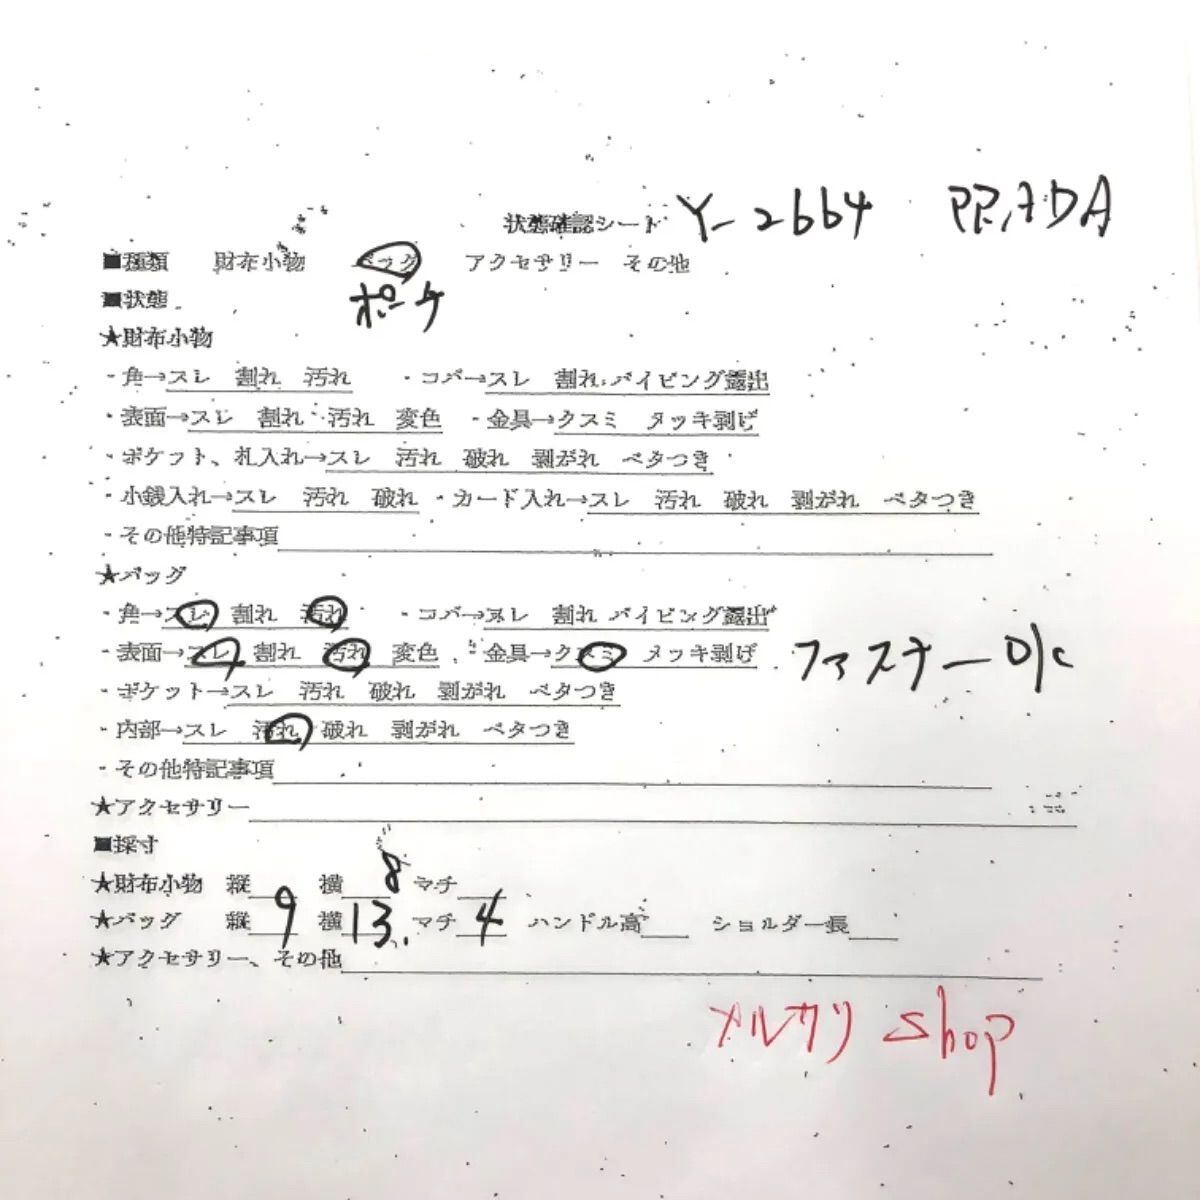 状態確認シート Y-2664 PRADA
■種類 財布小物 バッグ アクセサリー その他
■状態 ポーチ
★財布小物
・角→スレ 割れ 汚れ ・コバ→スレ 割れ パイピング露出
・表面→スレ 割れ 汚れ 変色 ・金具→クスミ メッキ剥げ
・ポケット、札入れ→スレ 汚れ 破れ 剥がれ ベタつき
・小銭入れ→スレ 汚れ 破れ ・カード入れ→スレ 汚れ 破れ 剥がれ ベタつき
・その他特記事項
★バッグ
・角→スレ 割れ 汚れ ・コバ→スレ 割れ パイピング露出
・表面→スレ 割れ 汚れ 変色 ・金具→クスミ メッキ剥げ ファスナーOK
・ポケット→スレ 汚れ 破れ 剥がれ ベタつき
・内部→スレ 汚れ 破れ 剥がれ ベタつき
・その他特記事項
★アクセサリー
■採寸
★財布小物 縦 横 8 マチ
★バッグ 縦 9 横 13. マチ 4 ハンドル高 ショルダー長
★アクセサリー、その他
メルカリ shop